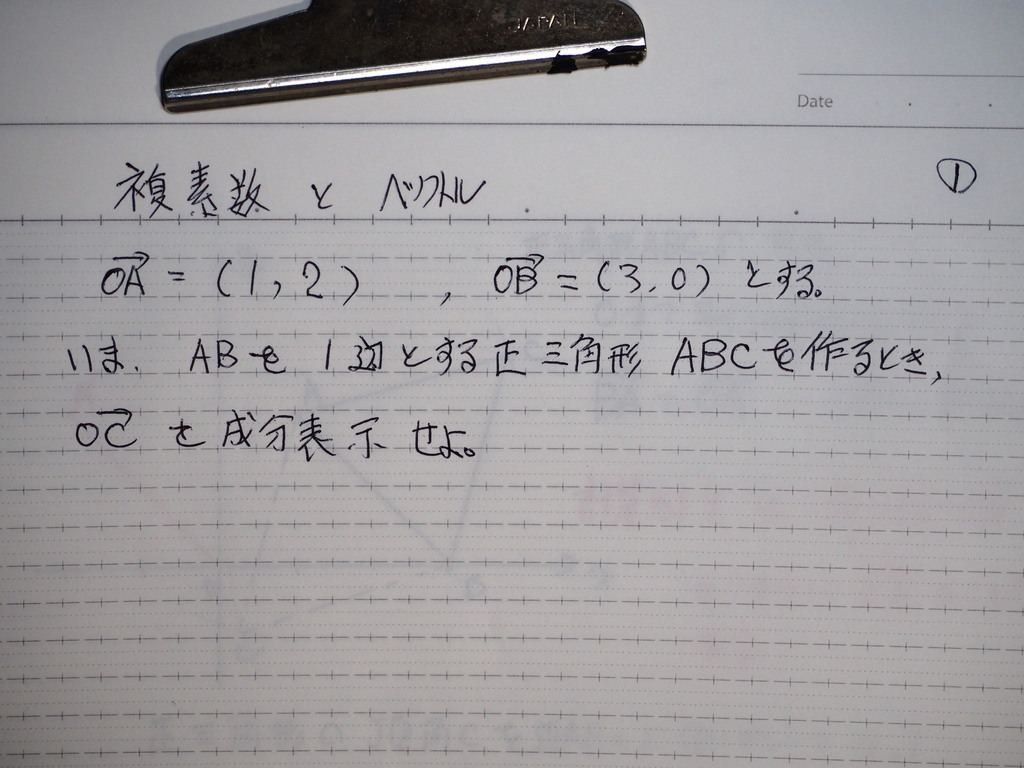 JAPAN
Date
複素数 と ベクトル ①
OA = (1, 2) , OB = (3, 0) とする。
いま、ABを1辺とする正三角形ABCを作るとき、
OC を成分表示せよ。